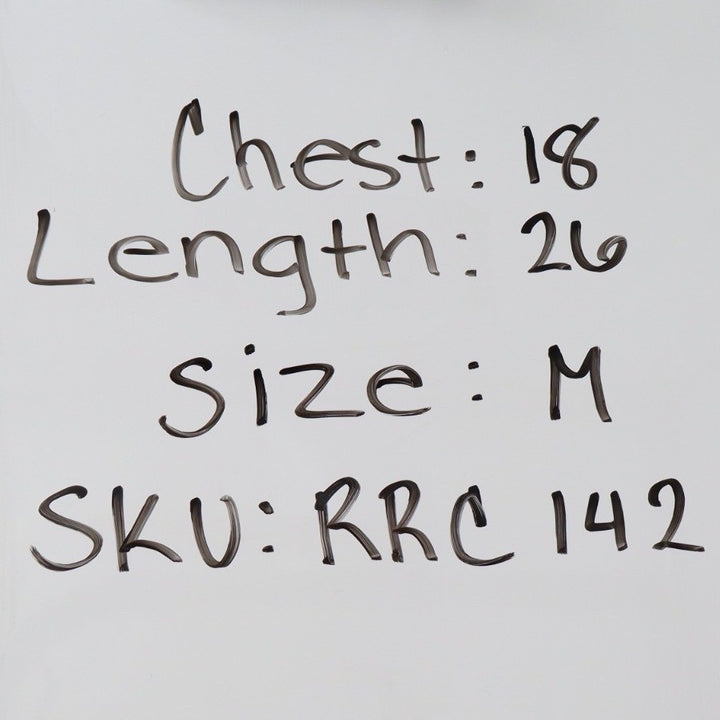 Chest: 18
Length: 26
Size: M
SKU: RRC 142